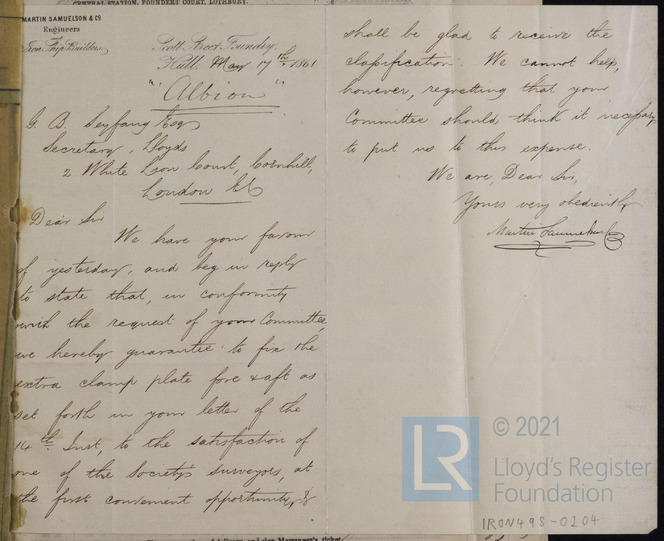 CENTRAL STATION, FOUNDERS' COURT, LOTHBURY.
MARTIN SAMUELSON & Co
Engineers
and
Iron Ship Builders
Scott Street Foundry,
Hull, May 17th 1861
"Albion"
G. B. Seyfang Esq
Secretary, Lloyds
2 White Lion Court, Cornhill,
London EC
Dear Sir
We have your favour
of yesterday, and beg in reply
to state that, in conformity
with the request of your Committee,
we hereby guarantee to fix the
extra clamp plate fore & aft as
set forth in your letter of the
14th Inst, to the satisfaction of
one of the Society's surveyors, at
the first convenient opportunity, &
shall be glad to receive the
classification. We cannot help,
however, regretting that your
Committee should think it necessary
to put us to this expense.
We are, Dear Sir,
Yours very obediently
Martin Samuelson & Co
LR
© 2021
Lloyd's Register
Foundation
IRON498-0204